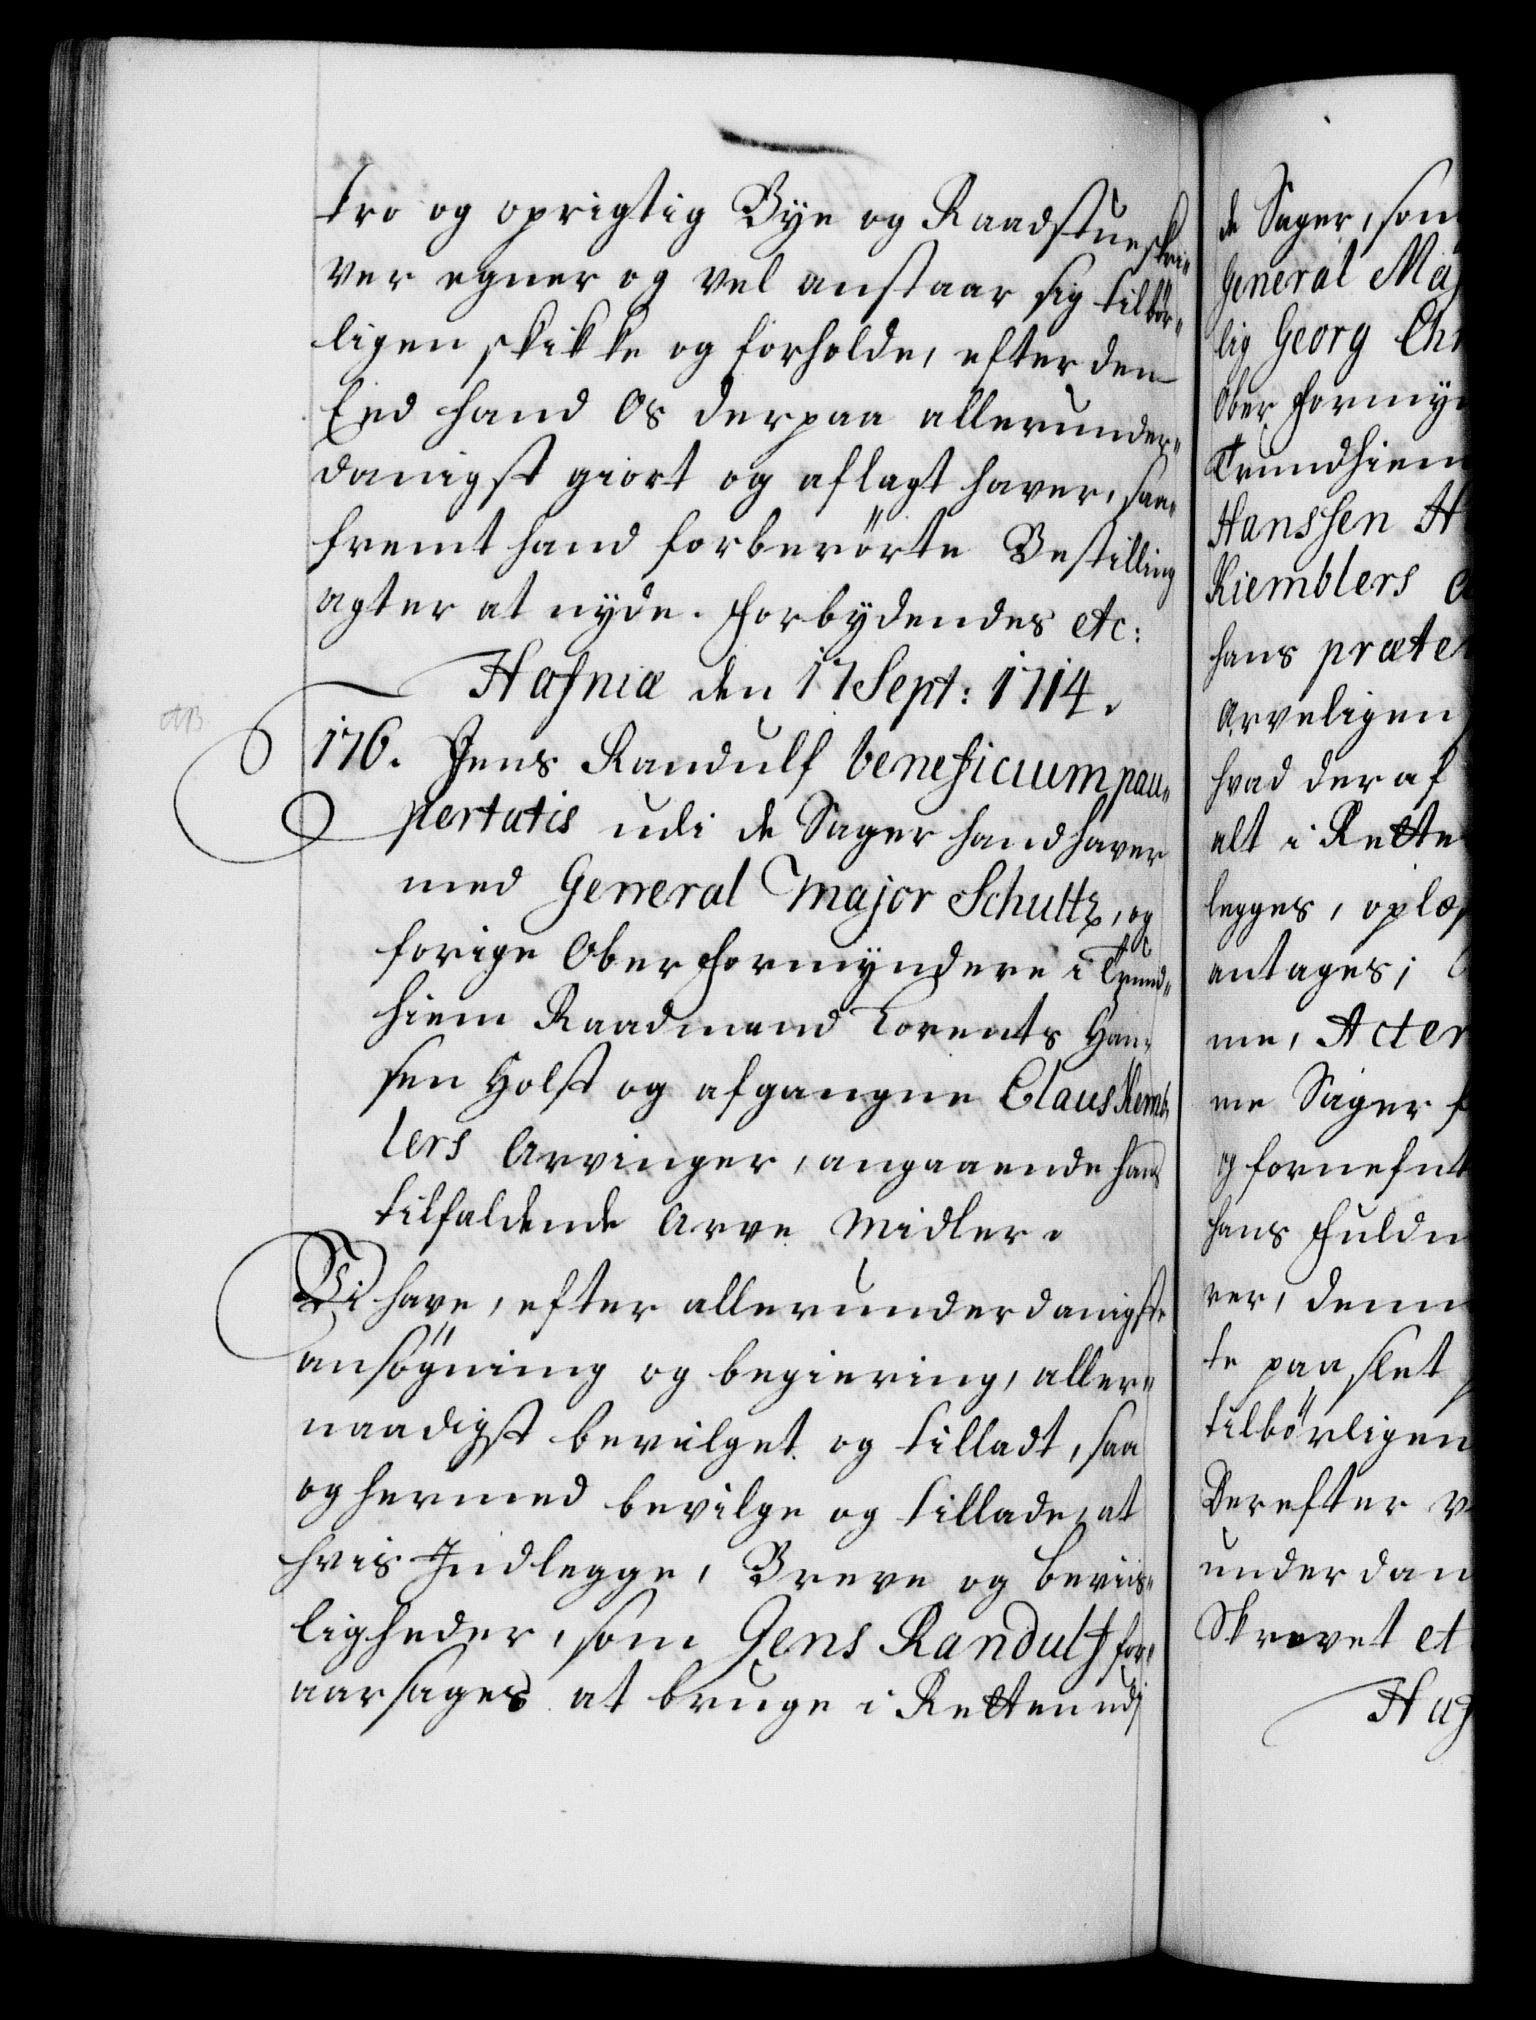 tro og oprigtig Bye og Raadstueskri-
ver egner og vel anstaar sig tilbör-
ligen skikke og forholde, efter den
Eed hand Os derpaa allerunder-
danigst giort og aflagt haver, saa-
fremt hand forberörte Bestilling
agter at nyde. Forbydendes etc:
Hafniæ den 17 Sept: 1714.
176. Jens Randulf beneficium pau-
pertatis udi de Sager hand haver
med General Major Schultz, og
forige Ober Formyndere i Trund-
hiem Raadmand Lorents Han-
sen Holst og afgangne Claus Kemb-
lers Arvinger, angaaende hans
tilfaldende Arve Midler.
Vi have, efter allerunderdanigste
ansögning og begiering, aller-
naadigst bevilget og tilladt, saa
og hermed bevilge og tillade, at
hvis Indlegge, Breve og beviis-
ligheder, som Jens Randulf for-
aarsages at bruge i Retten udj
de Sager, som
General Maj
lig Georg Chr
Ober Formyn
Trundhiem
Hanssen H
Kiemblers A
hans præte
arveligen
hvad deraf
alt i Rette
legges, oplæs
antages;
me, Acter
me Sager f
og fornefnt
hans Fuldm
ver, denn
te paa slet
tilbörligen
Derefter v
underdan
Skrevet et
Haf